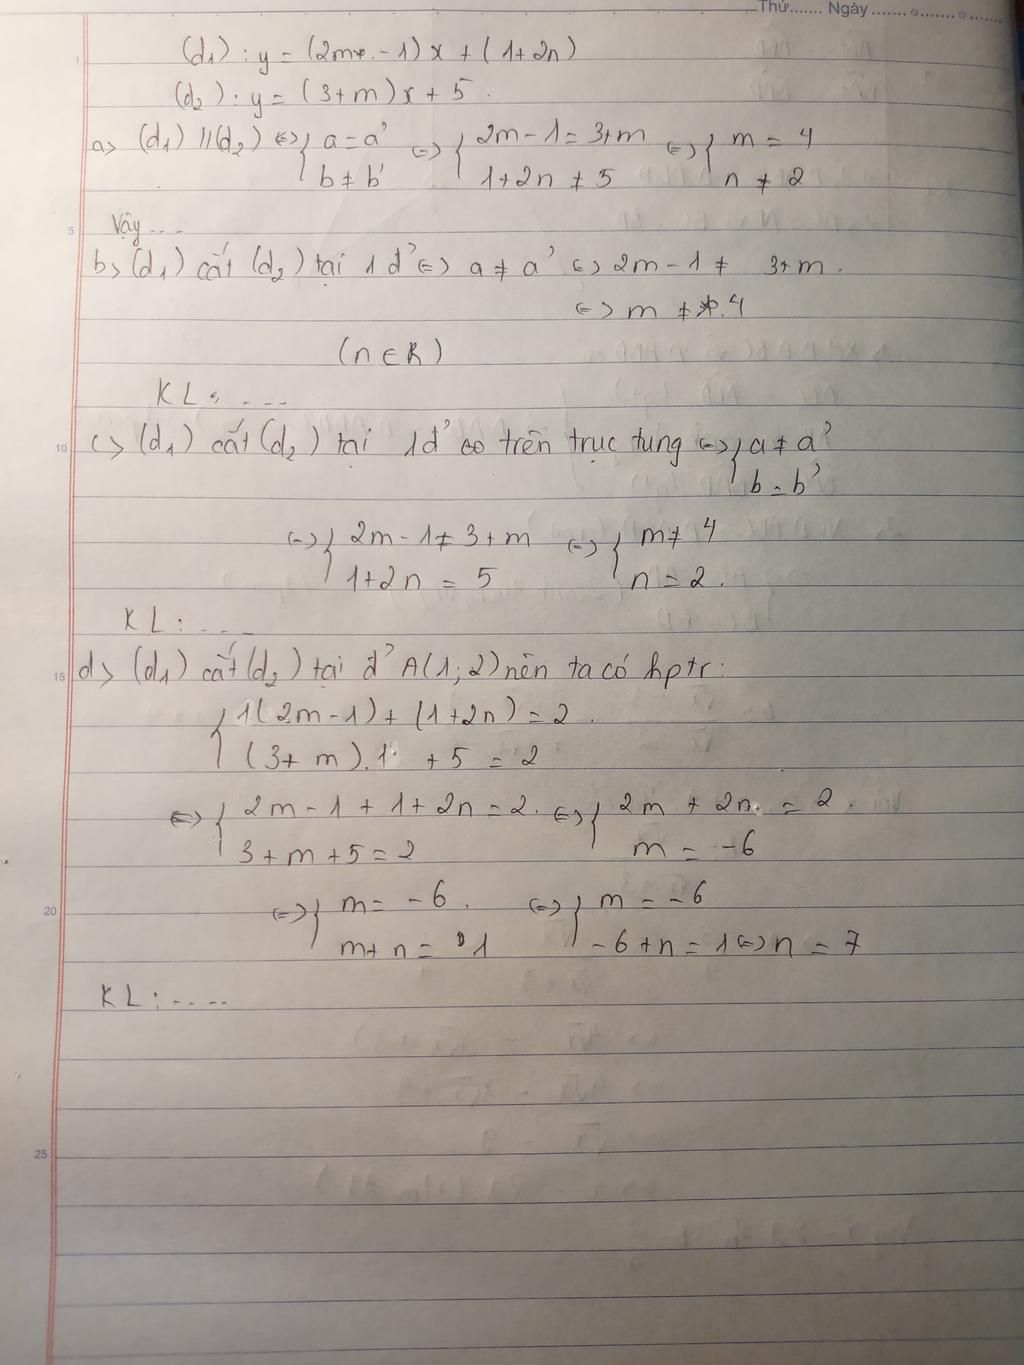 Thứ....... Ngày ...................
(d₁) : y = (2m - 1) x + (1+2n)
(d₂) : y = (3+m)x + 5.
a> (d₁) // (d₂) <=> { a = a' <=> { 2m - 1 = 3+m <=> { m = 4
b ≠ b' 1+2n ≠ 5 n ≠ 2
5 Vậy ...
b> (d₁) cắt (d₂) tại 1 đ' <=> a ≠ a' <=> 2m - 1 ≠ 3+m.
<=> m ≠ 4
(n ∈ R)
KL: ...
10 c> (d₁) cắt (d₂) tại 1 đ' trên trục tung <=> { a ≠ a'
b = b'
<=> { 2m - 1 ≠ 3+m <=> { m ≠ 4
1+2n = 5 n = 2.
KL: ...
15 d> (d₁) cắt (d₂) tại đ' A(1; 2) nên ta có hptr:
{ 1(2m-1) + (1+2n) = 2.
(3+m).1 + 5 = 2
<=> { 2m - 1 + 1 + 2n = 2. <=> { 2m + 2n = 2.
3+m+5 = 2 m = -6
20 <=> { m = -6. <=> { m = -6
m+n = 1 -6+n = 1 <=> n = 7
KL: ....
25